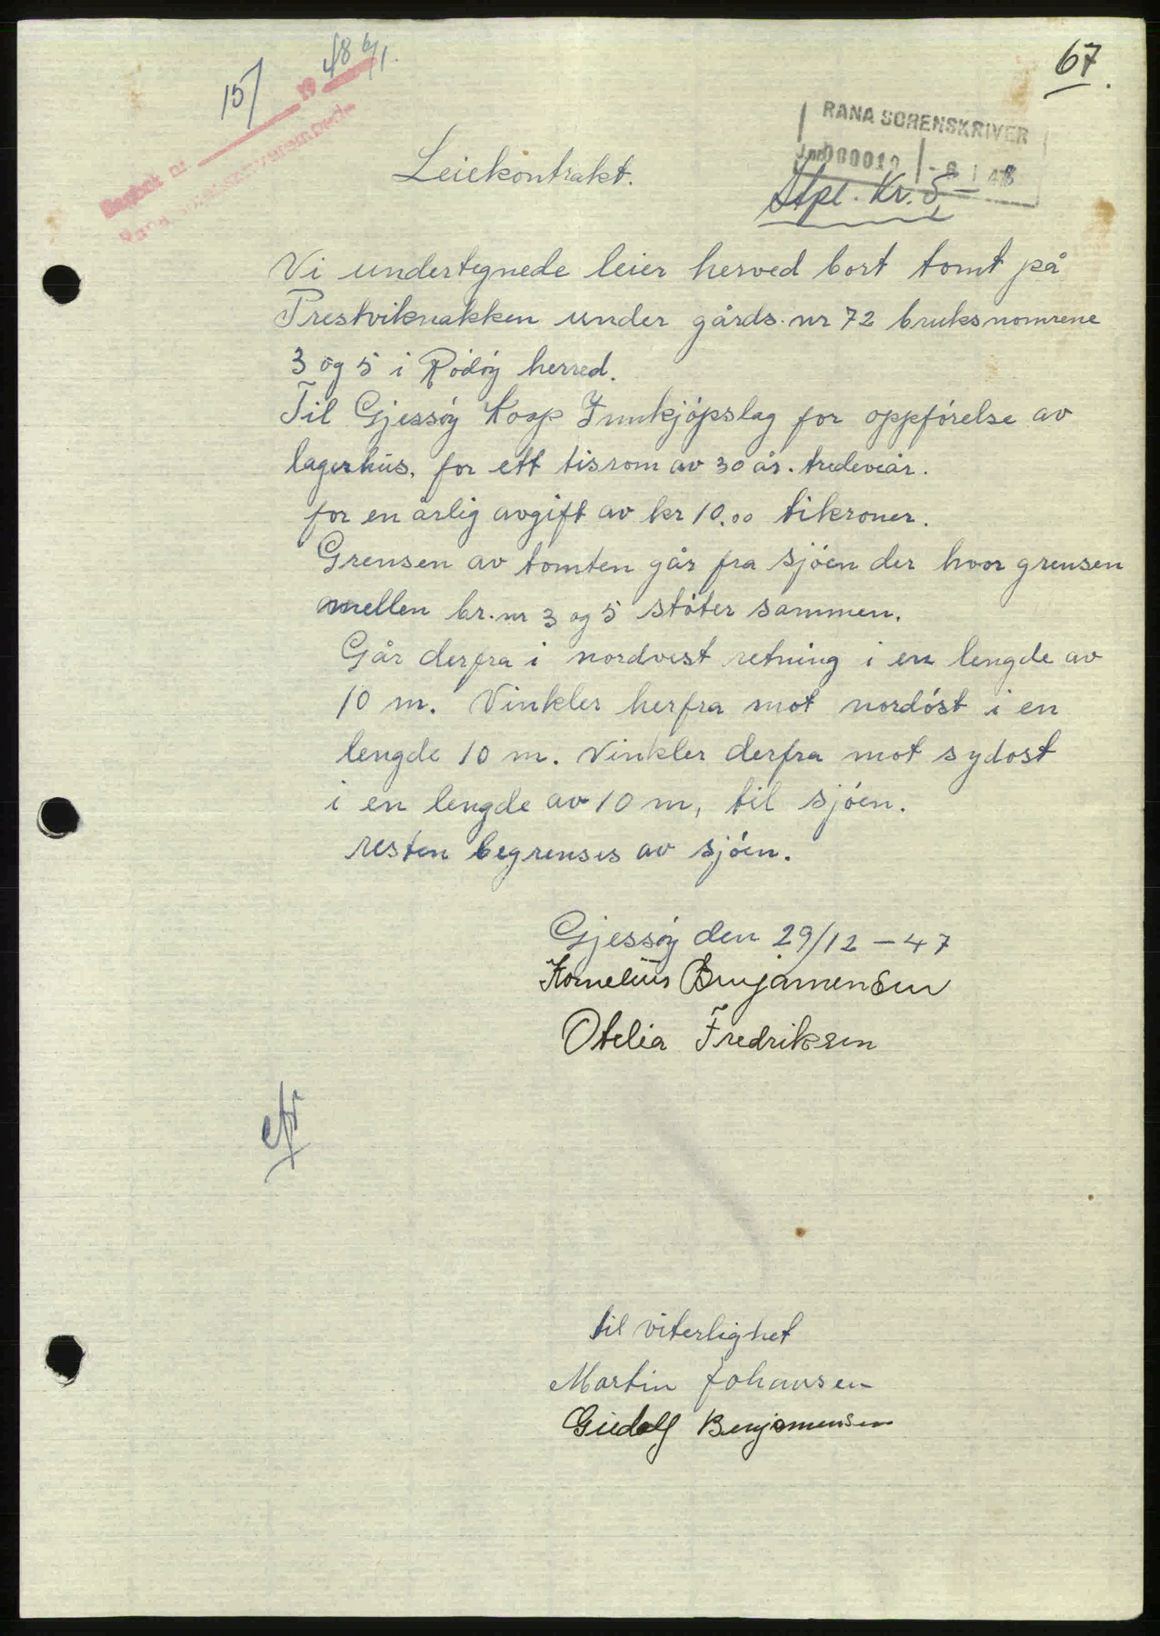 67.
15/ 19 48 6/1.
Dagbok nr.
Rana sorenskriverembede
RANA SORENSKRIVER
Jnr 000012 - 6 1 48
Stpl. Kr. 5,-
Leiekontrakt.
Vi undertegnede leier herved bort tomt på
Prestviknakken under gårds.nr 72 bruksnomrene
3 og 5 i Rödöy herred.
Til Gjessöy Koop Innkjöpslag for oppförelse av
lagerhus, for ett tisrom av 30 år. tredveår.
for en årlig avgift av kr 10.00 tikroner.
Grensen av tomten går fra sjöen der hvor grensen
mellen br.nr 3 og 5 stöter sammen.
Går derfra i nordvest retning i en lengde av
10 m. Vinkler herfra mot nordöst i en
lengde 10 m. Vinkler derfra mot sydost
i en lengde av 10 m, til sjöen.
resten begrenses av sjöen.
Gjessöy den 29/12 - 47
Kornelius Benjamensen
Otelia Fredriksen
til viterlighet
Martin Johansen
Gudolf Benjamensen